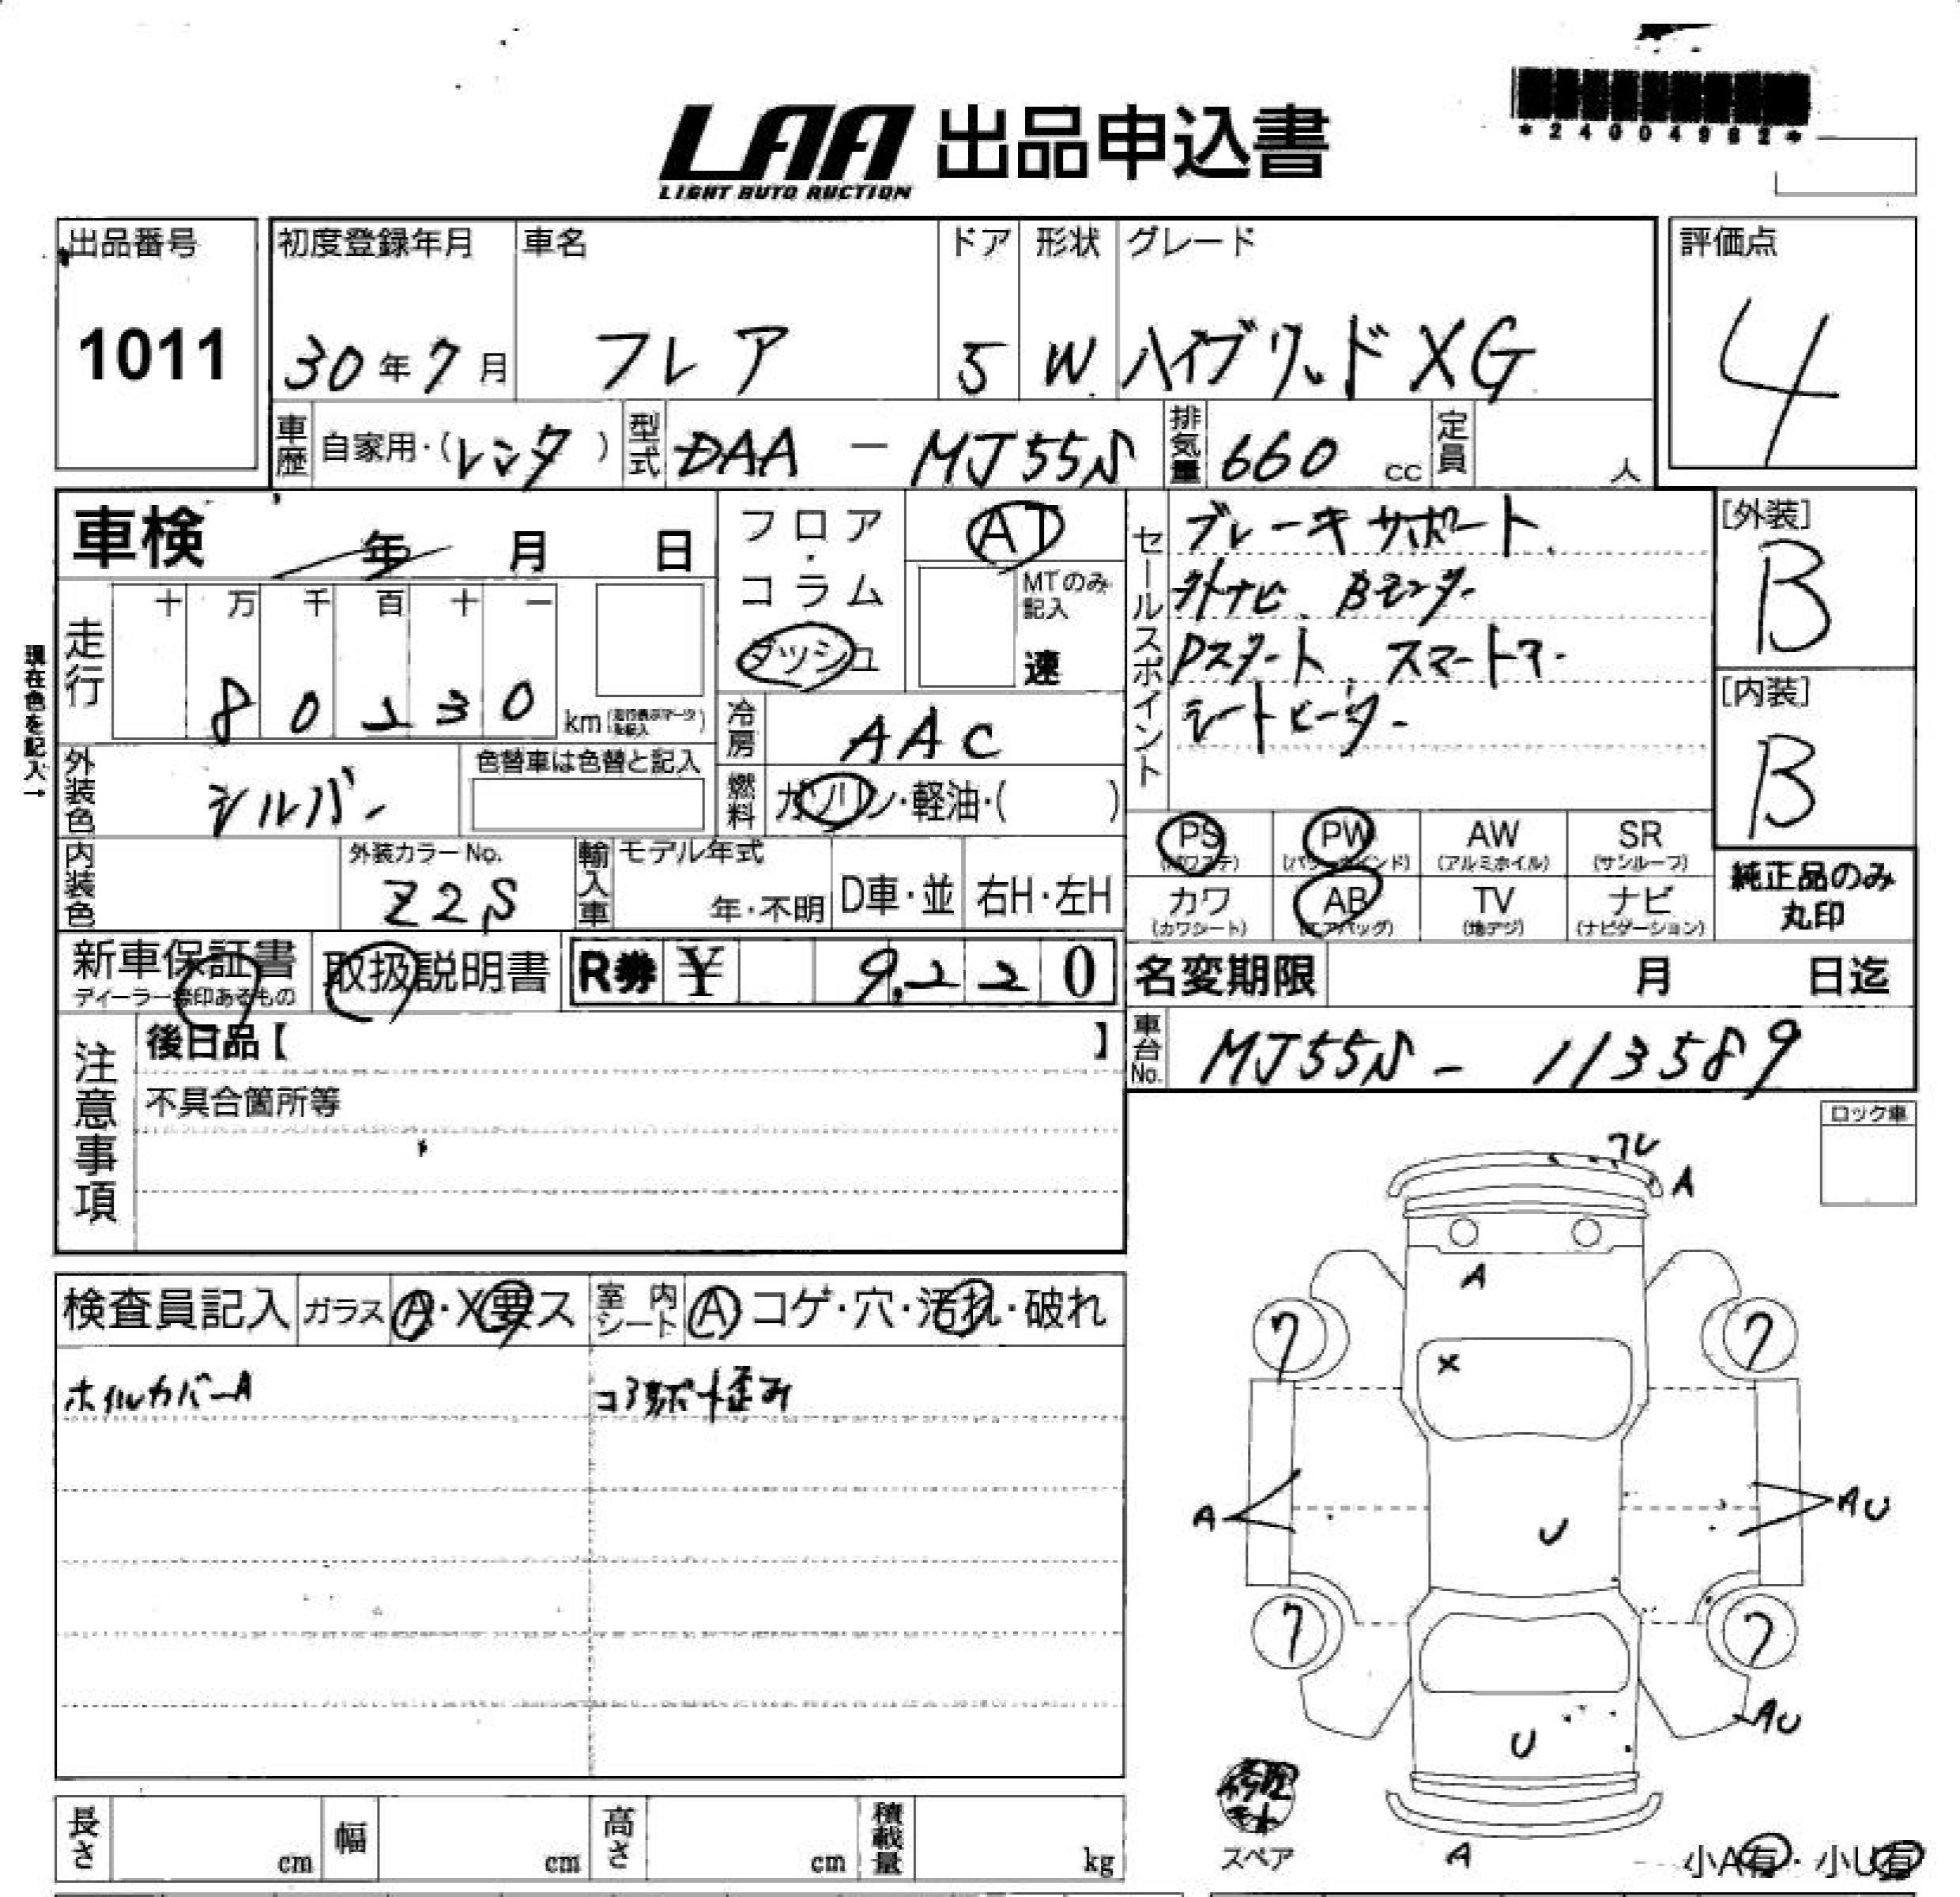 *24004982*
LAA 出品申込書
LIGHT AUTO AUCTION
出品番号
1011
初度登録年月
30年7月
車名
フレア
ドア
5
形状
W
グレード
ハイブリッドXG
評価点
4
車歴 自家用・(レンタ)
型式 DAA - MJ55S
排気量 660 cc
定員 人
車検 年 月 日
フロア・コラム
ダッシュ
AT
MTのみ記入
速
セールスポイント
ブレーキサポート
外ナビ、Bモニター
Pスタート、スマートキー
シートヒーター
[外装]
B
[内装]
B
現在色を記入→
走行
十万千百十一
80230 km
冷房 AAC
外装色 シルバー
色替車は色替と記入
燃料 ガソリン・軽油・( )
内装色
外装カラーNo.
Z2S
輸入車
モデル年式
年・不明
D車・並
右H・左H
PS
(パワステ)
PW
(パワーウインド)
AW
(アルミホイル)
SR
(サンルーフ)
カワ
(カワシート)
AB
(エアバッグ)
TV
(地デジ)
ナビ
(ナビゲーション)
純正品のみ
丸印
新車保証書
取扱説明書
R券 ¥ 9,220
名変期限 月 日迄
車台No. MJ55S - 113589
注意事項
後日品【 】
不具合箇所等
ロック車
フレ
A
A
7
7
X
A
U
AU
7
7
AU
U
A
検査員記入
ガラス A・X要ス
室内シート A コゲ・穴・汚れ・破れ
ホイルカバーA
コアサポート歪み
スペア
小A有・小U有
長さ cm
幅 cm
高さ cm
積載量 kg